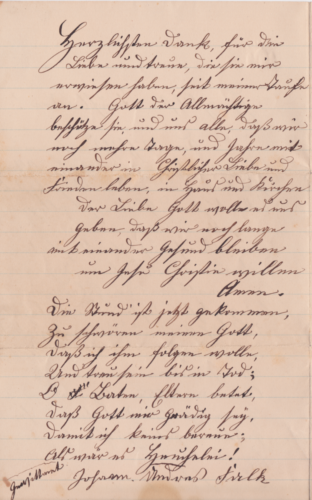 Herzlichsten Dank, für die
Liebe und treue, die sie mir
erwiesen haben, seit meiner Taufe
an. Gott der Allmächtige
beschütze sie, und uns alle, daß wir
noch mehre Tage, und Jahre mit
einander in Christlicher Liebe und
Frieden leben, in Haus und Kirchen
Der Liebe Gott wolle es uns
geben, daß wir noch lange
mit einander Gesund bleiben
um Jesu Christie willen
Amen.
Die Stund ist jetzt gekommen,
Zu schwören meinem Gott,
Daß ich ihm folgen wolle,
Und treu sein bis in Tod;
O Baten, Eltern betet,
Daß Gott mir gnädig sey,
Damit ich keins bereue;
Als war es Heuchelei!
Johann. Andras Falk